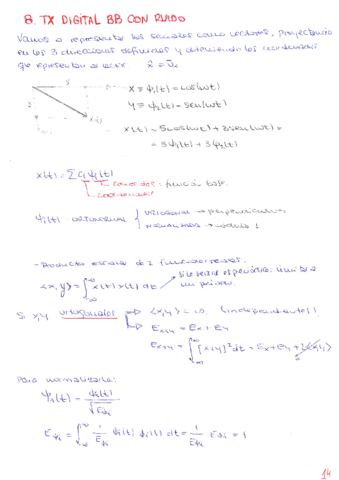 8. TX DIGITAL BB CON RUIDO
Vamos a representar las señales como vectores, proyectando
en las 3 direcciones definidas y obteniendo las coordenadas
que representan al vector
5
x ≡ ψ₁(t) = cos(ωt)
3
y ≡ ψ₂(t) = sen(ωt)
x(t)
x(t) = 5cos(ωt) + 3sen(ωt) =
= 5ψ₁(t) + 3ψ₂(t)
x(t) = ∑ Cᵢψᵢ(t)
conocidos: función base.
coordenadas
ψᵢ(t): ortonormal { ortogonal → perpendiculares
normalizada → módulo 1
- Producto escalar de 2 funciones reales.
<x,y> = ∫_{-∞}^{∞} x(t) y(t) dt
Si la señal es periódica: límites a
un periodo.
Si x,y ortogonales ⇒ <x,y> = 0, (independientes)
E_{x+y} = E_x + E_y
E_{x+y} = ∫_{-∞}^{∞} [x+y]² dt = E_x + E_y + 2<x,y>
Para normalizarla:
ψ₁(t) = ψᵢ(t) / √E_{ψᵢ}
E_{ψᵢ} = ∫_{-∞}^{∞} 1/E_{ψᵢ} ψᵢ(t) ψᵢ(t) dt = 1/E_{ψᵢ} E_{ψᵢ} = 1
14